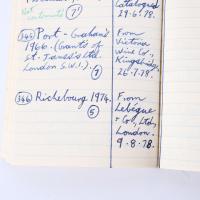 Not
contents ⑦
Catalogued
29.6.78.
(345) Port - Graham's
1966. (Grants of
St. James's Ltd.
London S.W.1.).
⑦
From
Victoria
Wine Co.,
Kingsbury,
26.7.78.
(346) Richebourg 1974.
⑤
From
Lebègue
& Co., Ltd,
London.
9.8.78.